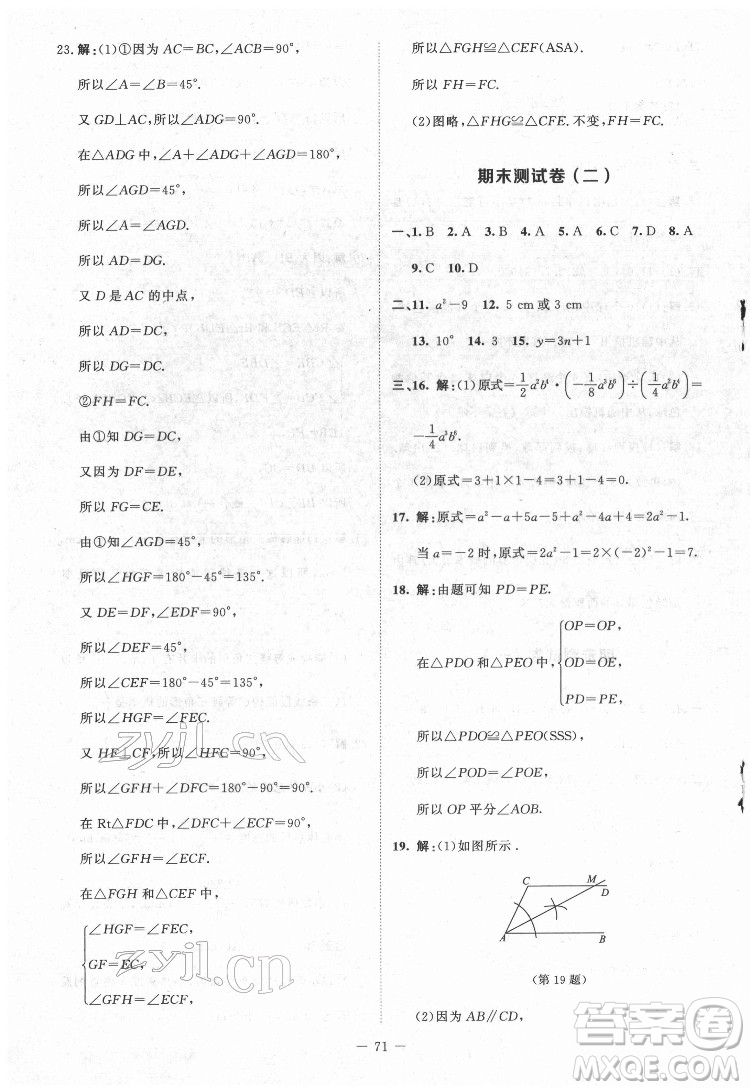 23. 解:(1)①因为 AC=BC,∠ACB=90°,
所以∠A=∠B=45°.
又 GD⊥AC,所以∠ADG=90°.
在△ADG 中,∠A+∠ADG+∠AGD=180°,
所以∠AGD=45°,
所以∠A=∠AGD.
所以 AD=DG.
又 D 是 AC 的中点,
所以 AD=DC,
所以 DG=DC.
②FH=FC.
由①知 DG=DC,
又因为 DF=DE,
所以 FG=CE.
由①知∠AGD=45°,
所以∠HGF=180°-45°=135°.
又 DE=DF,∠EDF=90°,
所以∠DEF=45°,
所以∠FEC=180°-45°=135°,
所以∠HGF=∠FEC.
又 HF⊥CF,所以∠HFC=90°.
所以∠GFH+∠DFC=180°-90°=90°.
在 Rt△FDC 中,∠DFC+∠ECF=90°,
所以∠GFH=∠ECF.
在△FGH 和△CEF 中,
∠HGF=∠FEC,
GF=EC,
∠GFH=∠ECF,
所以△FGH≌△CEF(ASA).
所以 FH=FC.
(2)图略,△FHG≌△CFE. 不变,FH=FC.
期末测试卷(二)
一、1. B 2. A 3. A 4. A 5. A 6. C 7. D 8. A
9. C 10. D
二、11. a²-9 12. 5 cm 或 3 cm
13. 10° 14. 3 15. y=3n+1
三、16. 解:(1)原式=1/2 a²b⁴·(-1/8 a³b⁶)÷(1/4 a²b⁴)=
-1/4 a³b⁶.
(2)原式=3+1×1-4=3+1-4=0.
17. 解:原式=a²-a+5a-5+a²-4a+4=2a²-1.
当 a=-2 时,原式=2a²-1=2×(-2)²-1=7.
18. 解:由题可知 PD=PE.
OP=OP,
在△PDO 和△PEO 中 OD=OE,
PD=PE,
所以△PDO≌△PEO(SSS),
所以∠POD=∠POE,
所以 OP 平分∠AOB.
19. 解:(1)如图所示.
C M
D
A B
(第 19 题)
(2)因为 AB∥CD,
— 71 —
zyjl.cn
zyjl.cn
答案圈
MXQE.COM